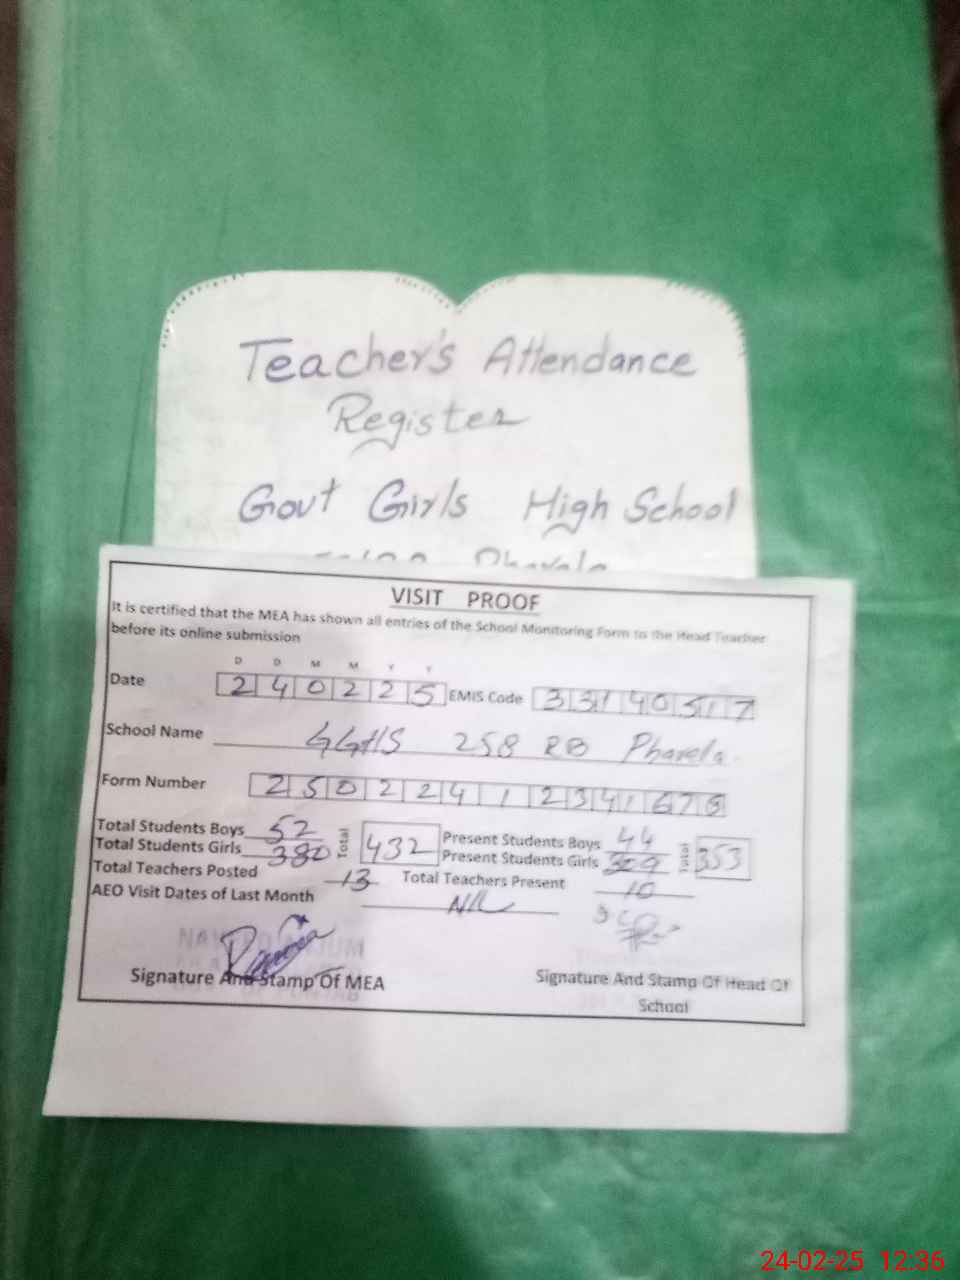 Teacher's Attendance
Register
Govt Girls High School
VISIT PROOF
It is certified that the MEA has shown all entries of the School Monitoring Form to the Head Teacher
before its online submission
D D M M Y Y
Date 240225 EMIS Code 33140517
School Name GGHS 258 RB Pharela
Form Number 2502241234167
Total Students Boys 52 Total 432 Present Students Boys 44 Total 353
Total Students Girls 380 Present Students Girls 309
Total Teachers Posted 13 Total Teachers Present 10
AEO Visit Dates of Last Month Nil
Signature And Stamp Of MEA
Signature And Stamp Of Head Of
School
24-02-25 12:36